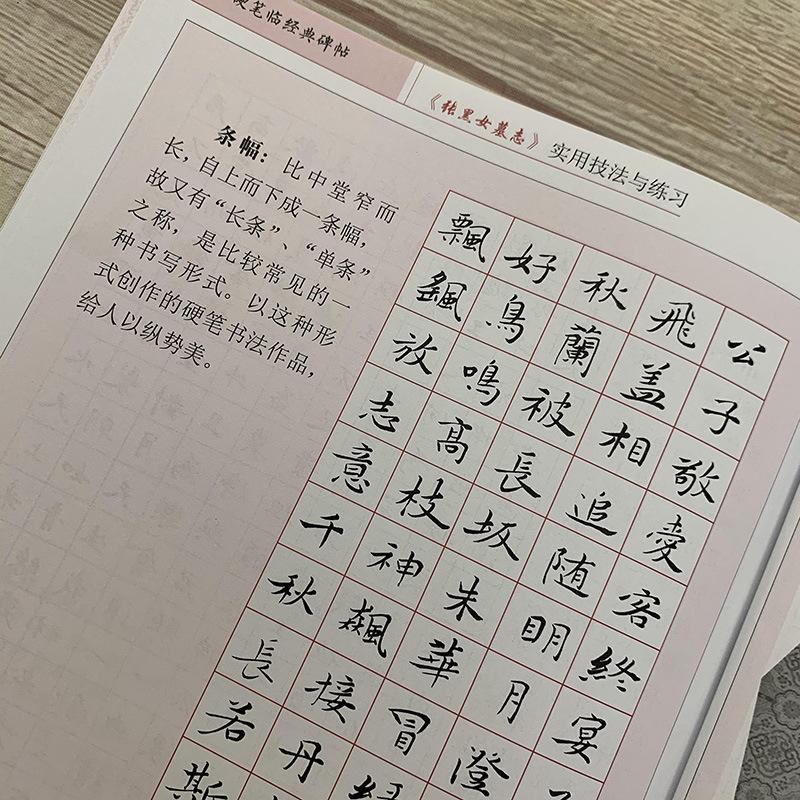 硬笔临经典碑帖
《张黑女墓志》实用技法与练习
条幅：比中堂窄而
长，自上而下成一条幅，
故又有“长条”、“单条”
之称，是比较常见的一
种书写形式。以这种形
式创作的硬笔书法作品，
给人以纵势美。
公子敬愛客終宴
飛盖相追随明月澄
秋蘭被長坂朱華冒
好鳥鳴髙枝神飆接丹
飄颻放志意千秋長若斯